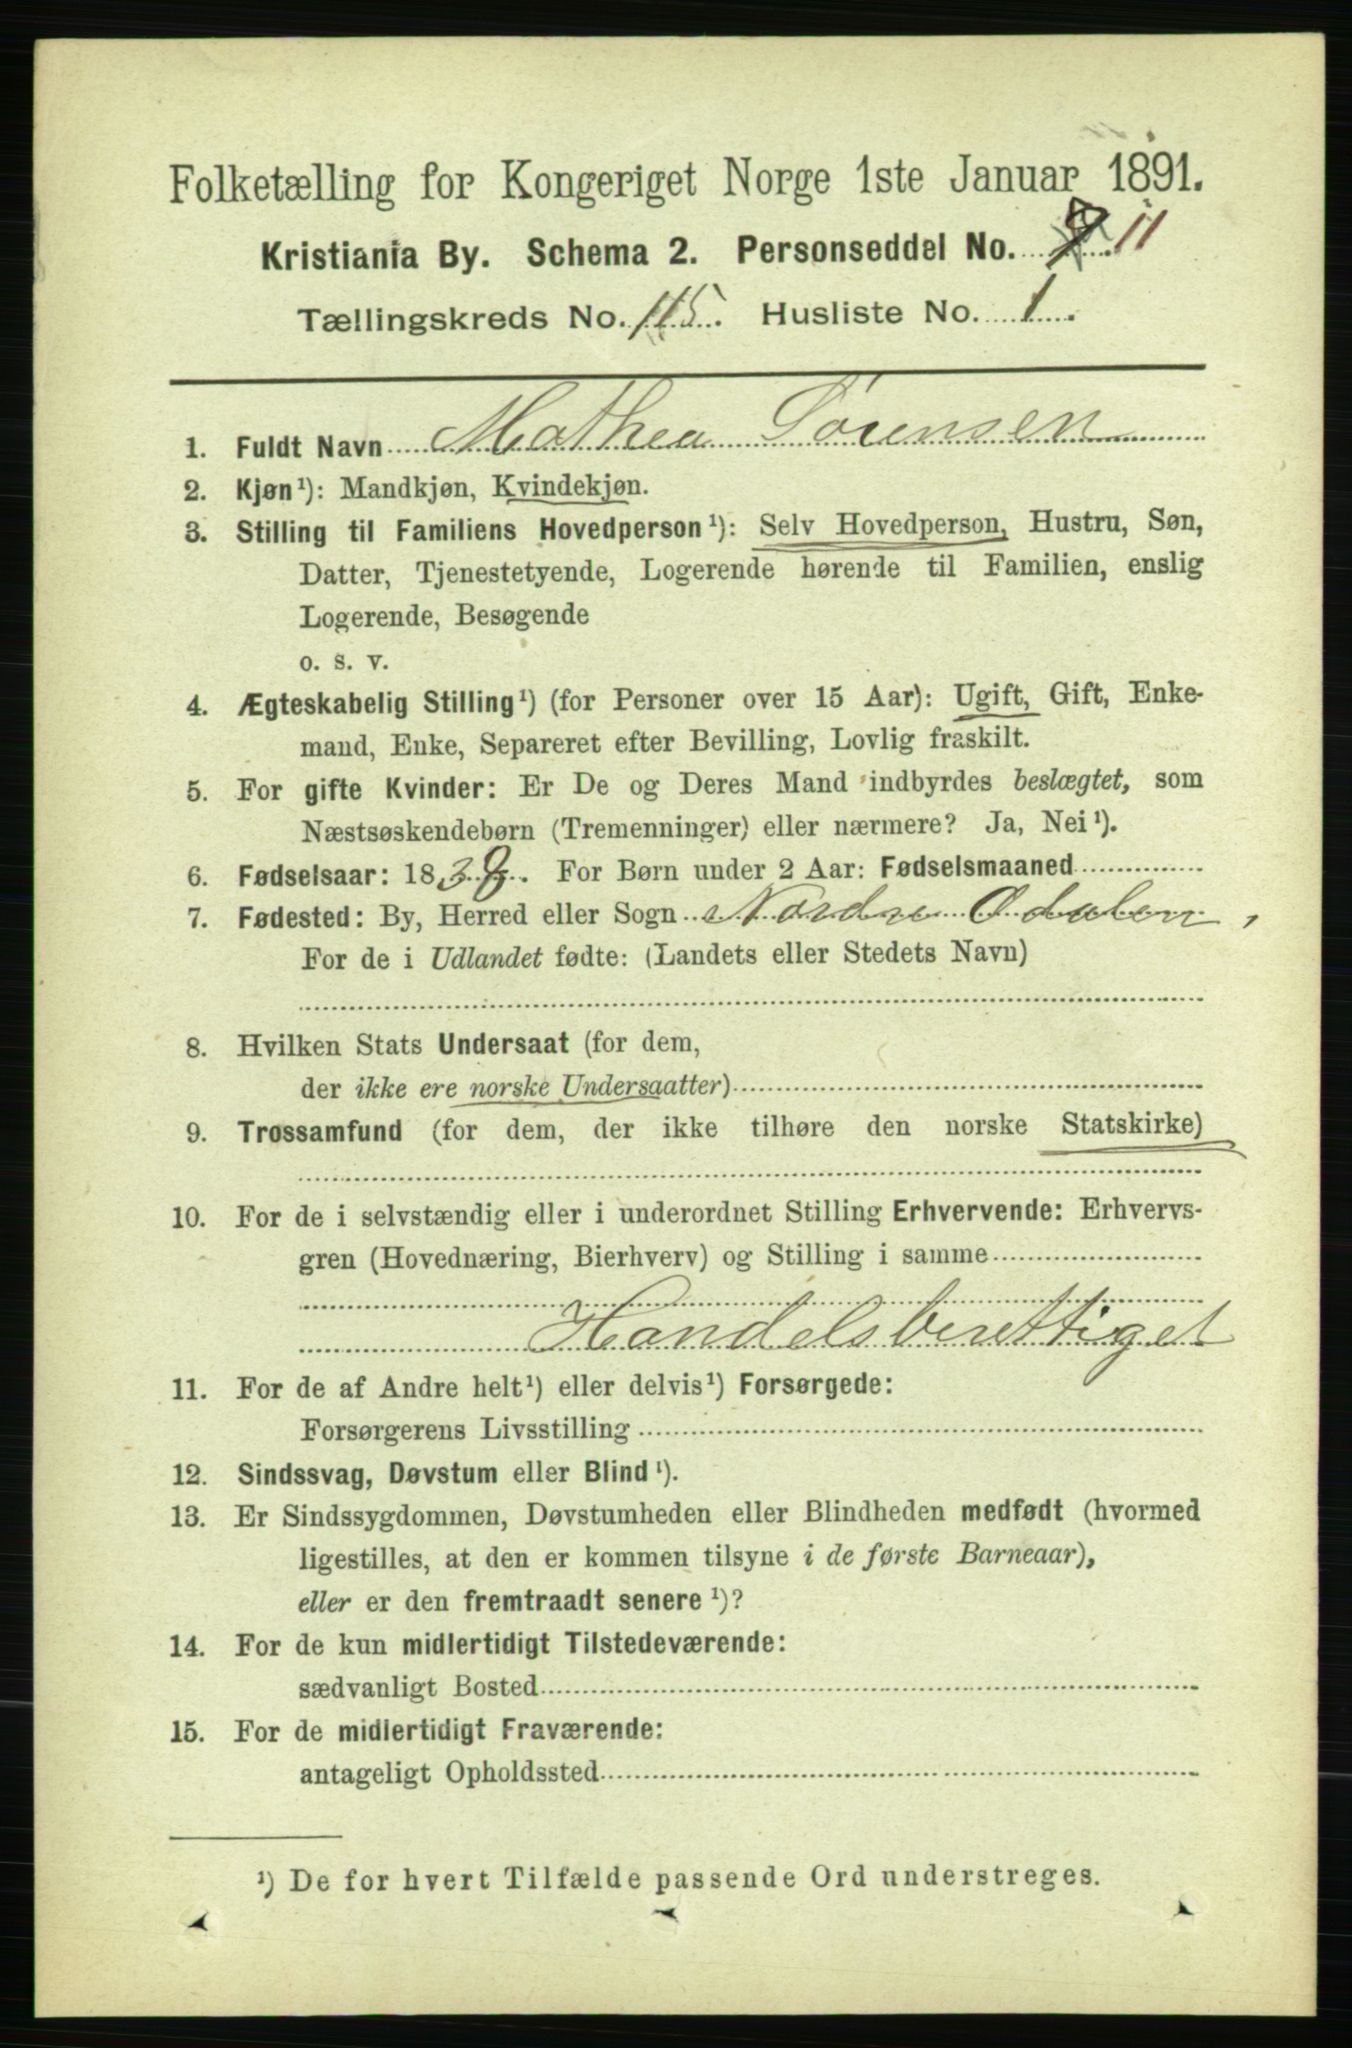 Folketælling for Kongeriget Norge 1ste Januar 1891.
Kristiania By. Schema 2. Personseddel No. 11
Tællingskreds No. 115. Husliste No. 1.
1. Fuldt Navn Mathea Sørensen
2. Kjøn¹): Mandkjøn, Kvindekjøn.
3. Stilling til Familiens Hovedperson¹): Selv Hovedperson, Hustru, Søn,
Datter, Tjenestetyende, Logerende hørende til Familien, enslig
Logerende, Besøgende
o. s. v.
4. Ægteskabelig Stilling¹) (for Personer over 15 Aar): Ugift, Gift, Enke-
mand, Enke, Separeret efter Bevilling, Lovlig fraskilt.
5. For gifte Kvinder: Er De og Deres Mand indbyrdes beslægtet, som
Næstsøskendebørn (Tremenninger) eller nærmere? Ja, Nei¹).
6. Fødselsaar: 18 For Børn under 2 Aar: Fødselsmaaned
7. Fødested: By, Herred eller Sogn Nordre Odalen,
For de i Udlandet fødte: (Landets eller Stedets Navn)
8. Hvilken Stats Undersaat (for dem,
der ikke ere norske Undersaatter)
9. Trossamfund (for dem, der ikke tilhøre den norske Statskirke)
10. For de i selvstændig eller i underordnet Stilling Erhvervende: Erhvervs-
gren (Hovednæring, Bierhverv) og Stilling i samme
Handelsberettiget
11. For de af Andre helt¹) eller delvis¹) Forsørgede:
Forsørgerens Livsstilling
12. Sindssvag, Døvstum eller Blind¹).
13. Er Sindssygdommen, Døvstumheden eller Blindheden medfødt (hvormed
ligestilles, at den er kommen tilsyne i de første Barneaar),
eller er den fremtraadt senere¹)?
14. For de kun midlertidigt Tilstedeværende:
sædvanligt Bosted
15. For de midlertidigt Fraværende:
antageligt Opholdssted
¹) De for hvert Tilfælde passende Ord understreges.